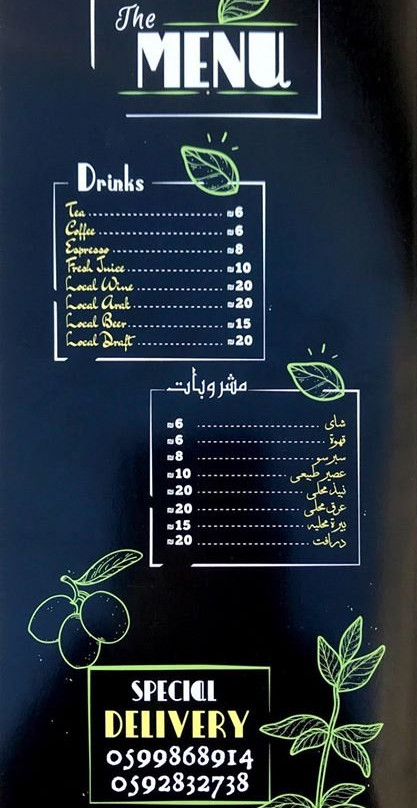 The
MENU
Drinks
Tea ₪6
Coffee ₪6
Espresso ₪8
Fresh Juice ₪10
Local Wine ₪20
Local Arak ₪20
Local Beer ₪15
Local Draft ₪20
مشروبات
شاي ₪6
قهوة ₪6
سبرسو ₪8
عصير طبيعي ₪10
نبيذ محلي ₪20
عرق محلي ₪20
بيرة محليه ₪15
درافت ₪20
SPECIAL
DELIVERY
0599868914
0592832738